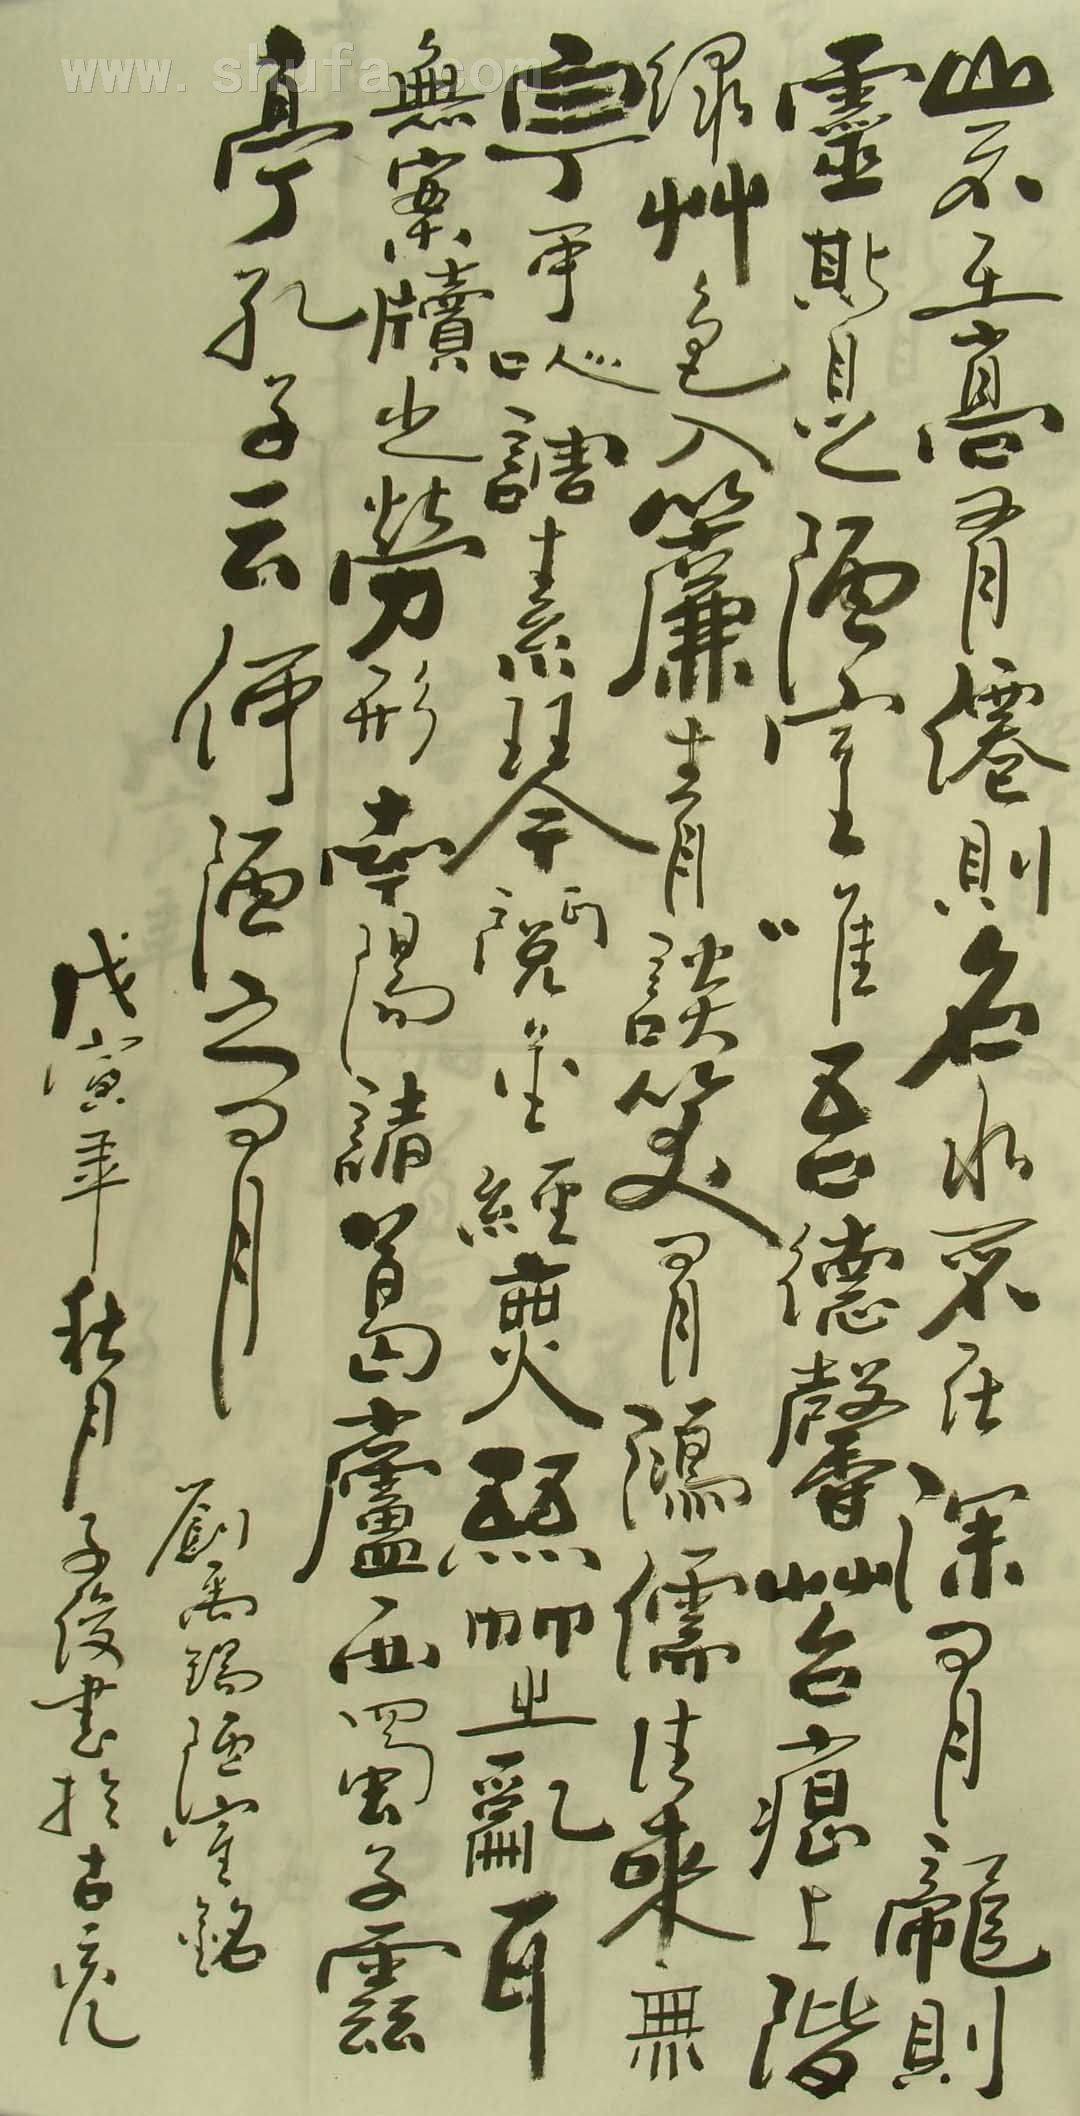 www.shufa.com
山不在高有僊則名水不在深有龍則
靈斯是陋室唯吾德馨苔痕上階
綠艸色入簾青談笑有鴻儒往來無
白丁可以調素琴閱金經無絲竹之亂耳
無案牘之勞形南陽諸葛廬西蜀子雲
亭孔子云何陋之有
劉禹錫陋室銘
戊寅年秋月子俊書於古亳